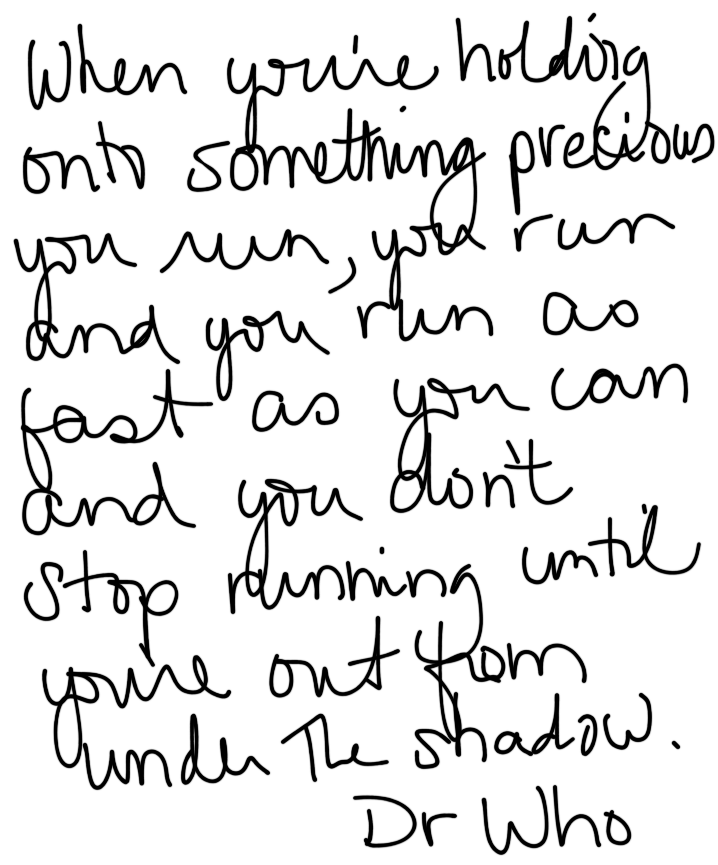 When you're holding
onto something precious
you run, you run
and you run as
fast as you can
and you don't
stop running until
you're out from
under the shadow.
Dr Who